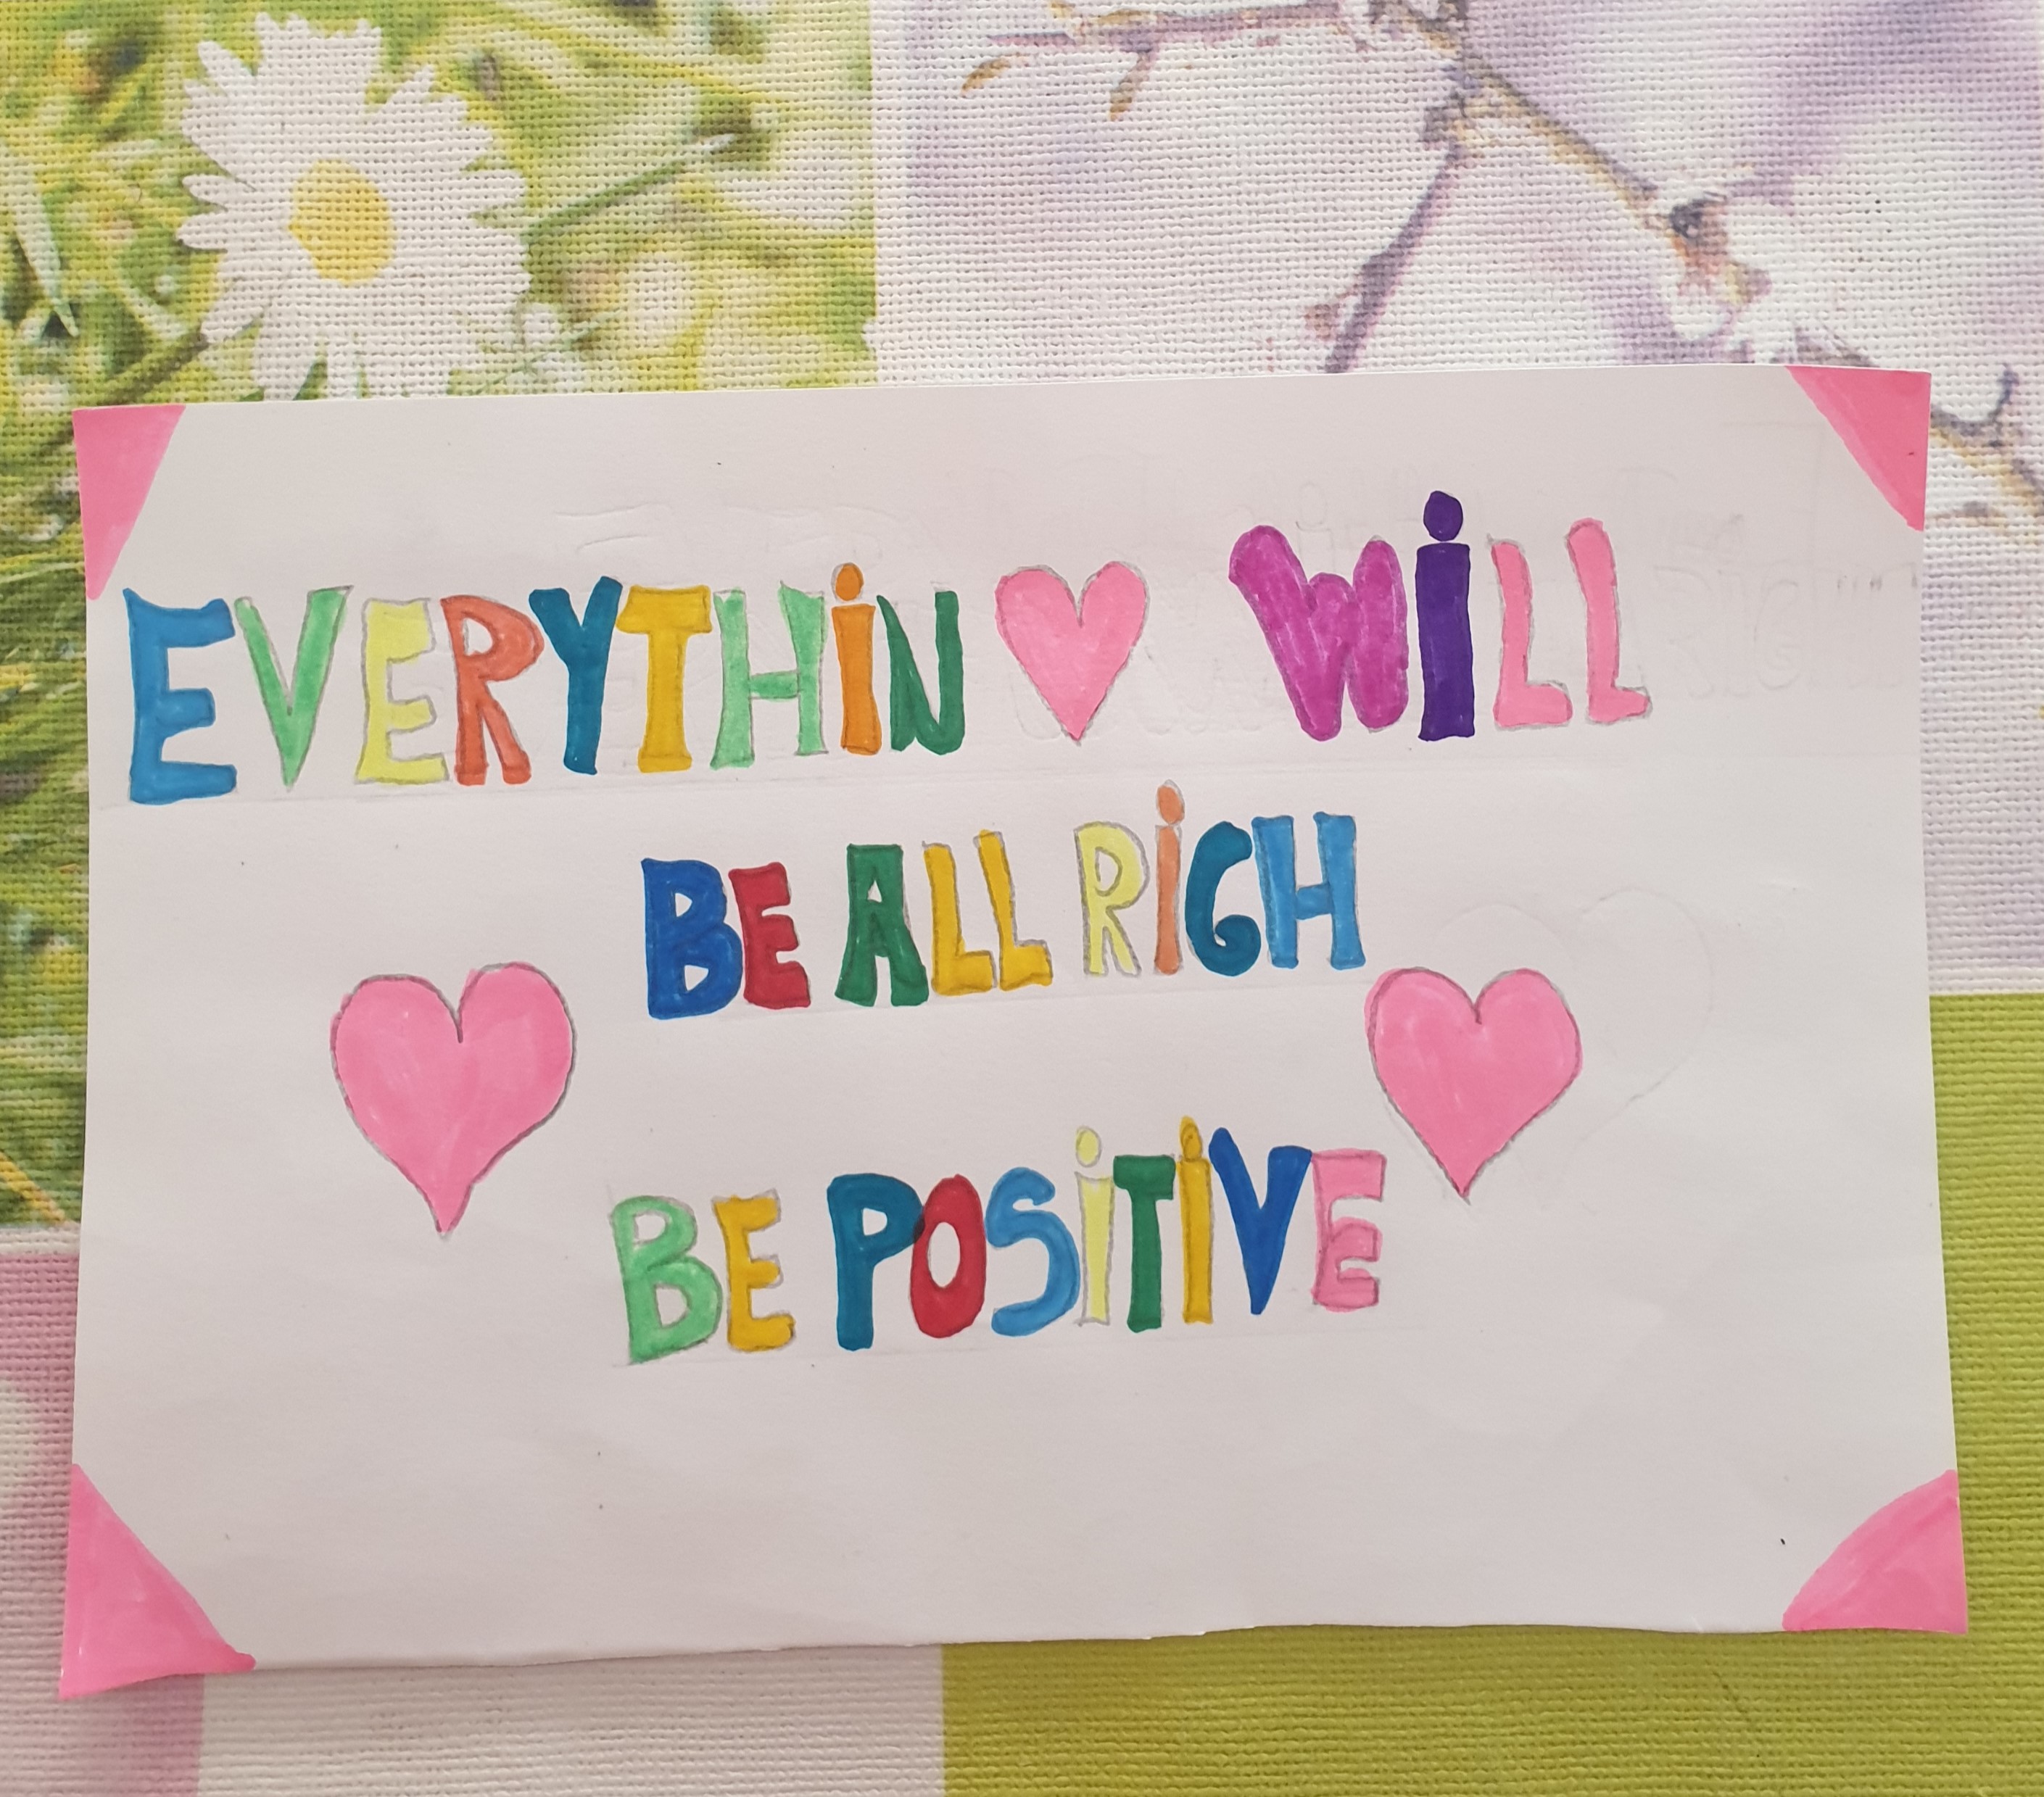 EVERYTHiN WiLL
BE ALL RiGH
BE POSiTiVE